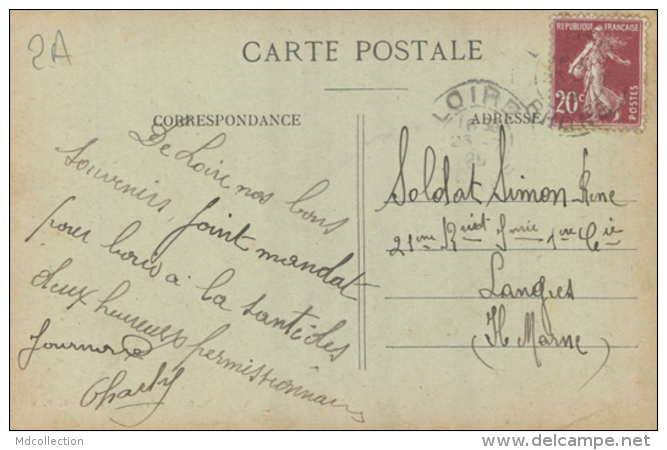 2A
CARTE POSTALE
REPUBLIQUE FRANÇAISE
20c
POSTES
LOIRE
RHONE
CORRESPONDANCE
ADRESSE
De Loire nos bons
souvenirs, joint mandat
pour boire à la santé des
deux heureux permissionnaires
Soldat Simon Rene
21me 1re Cie
Langres
(Hte Marne)
Mdcollection
www.delcampe.net